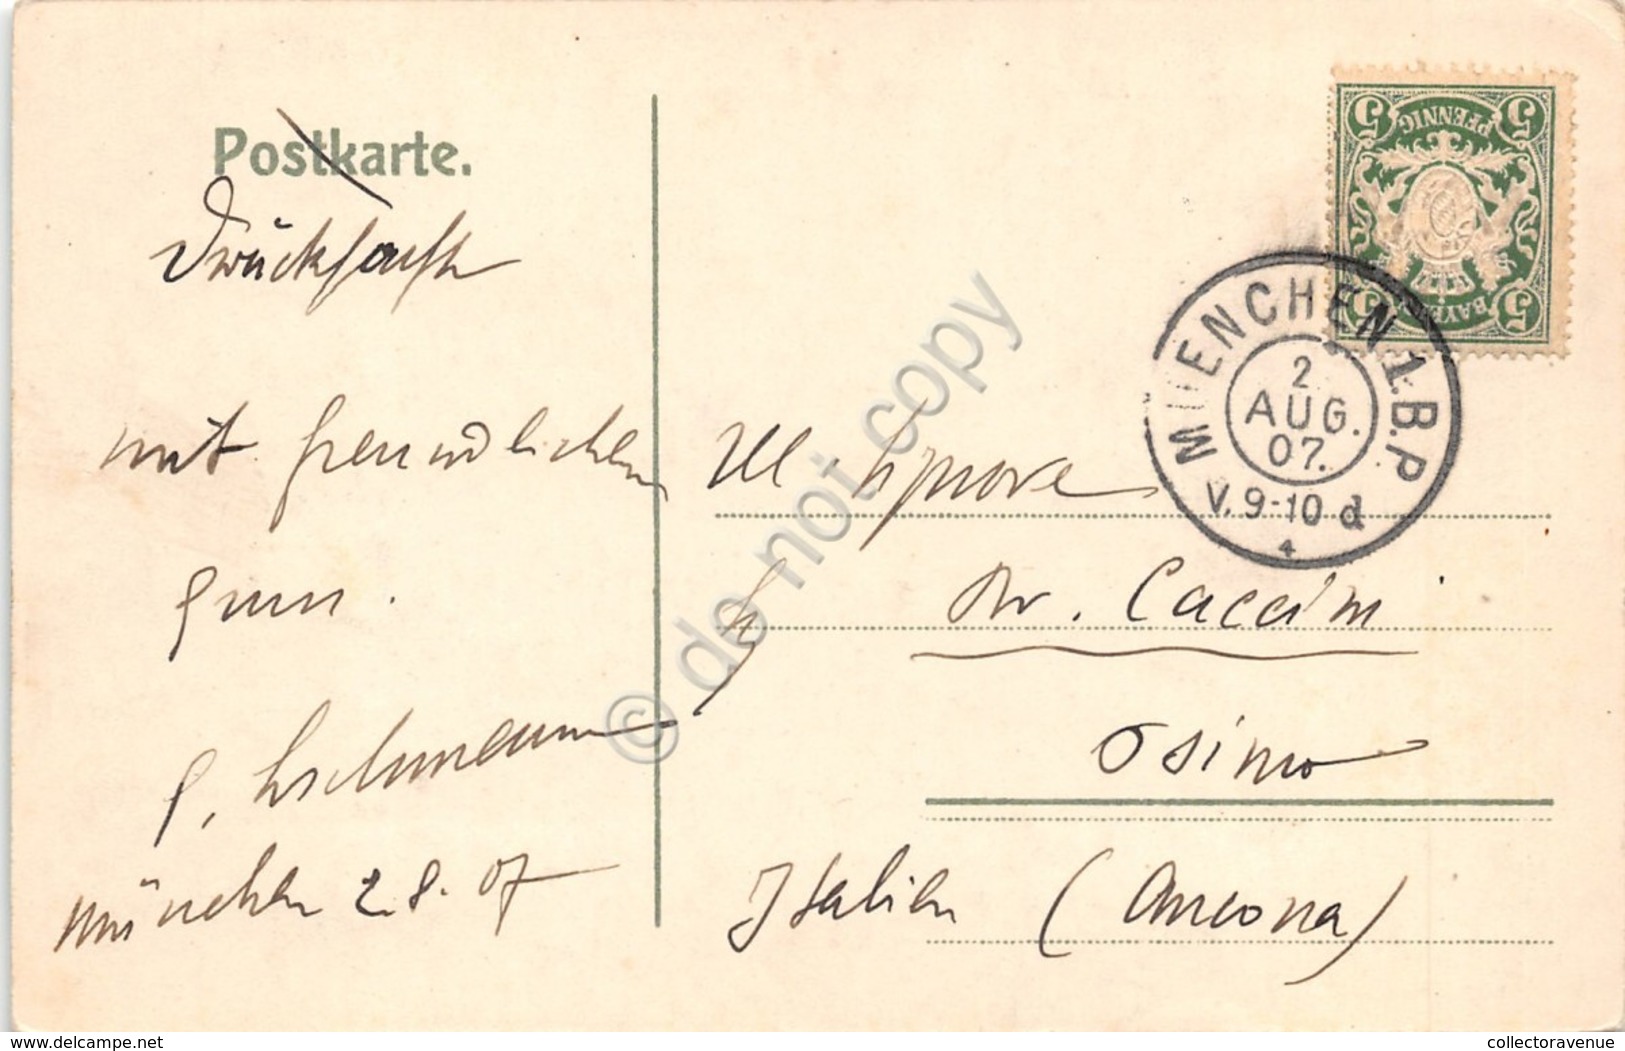 Postkarte.
Drucksache
mit freundlichem
Gruss.
München 2.8.07
5 PFENNIG 5
5 BAYERN 5
MUENCHEN 1. B.P.
2
AUG.
07.
V. 9-10 d
Signore
Dr. Caccini
Osimo
Italien (Ancona)
© do not copy
www.delcampe.net
collectoravenue